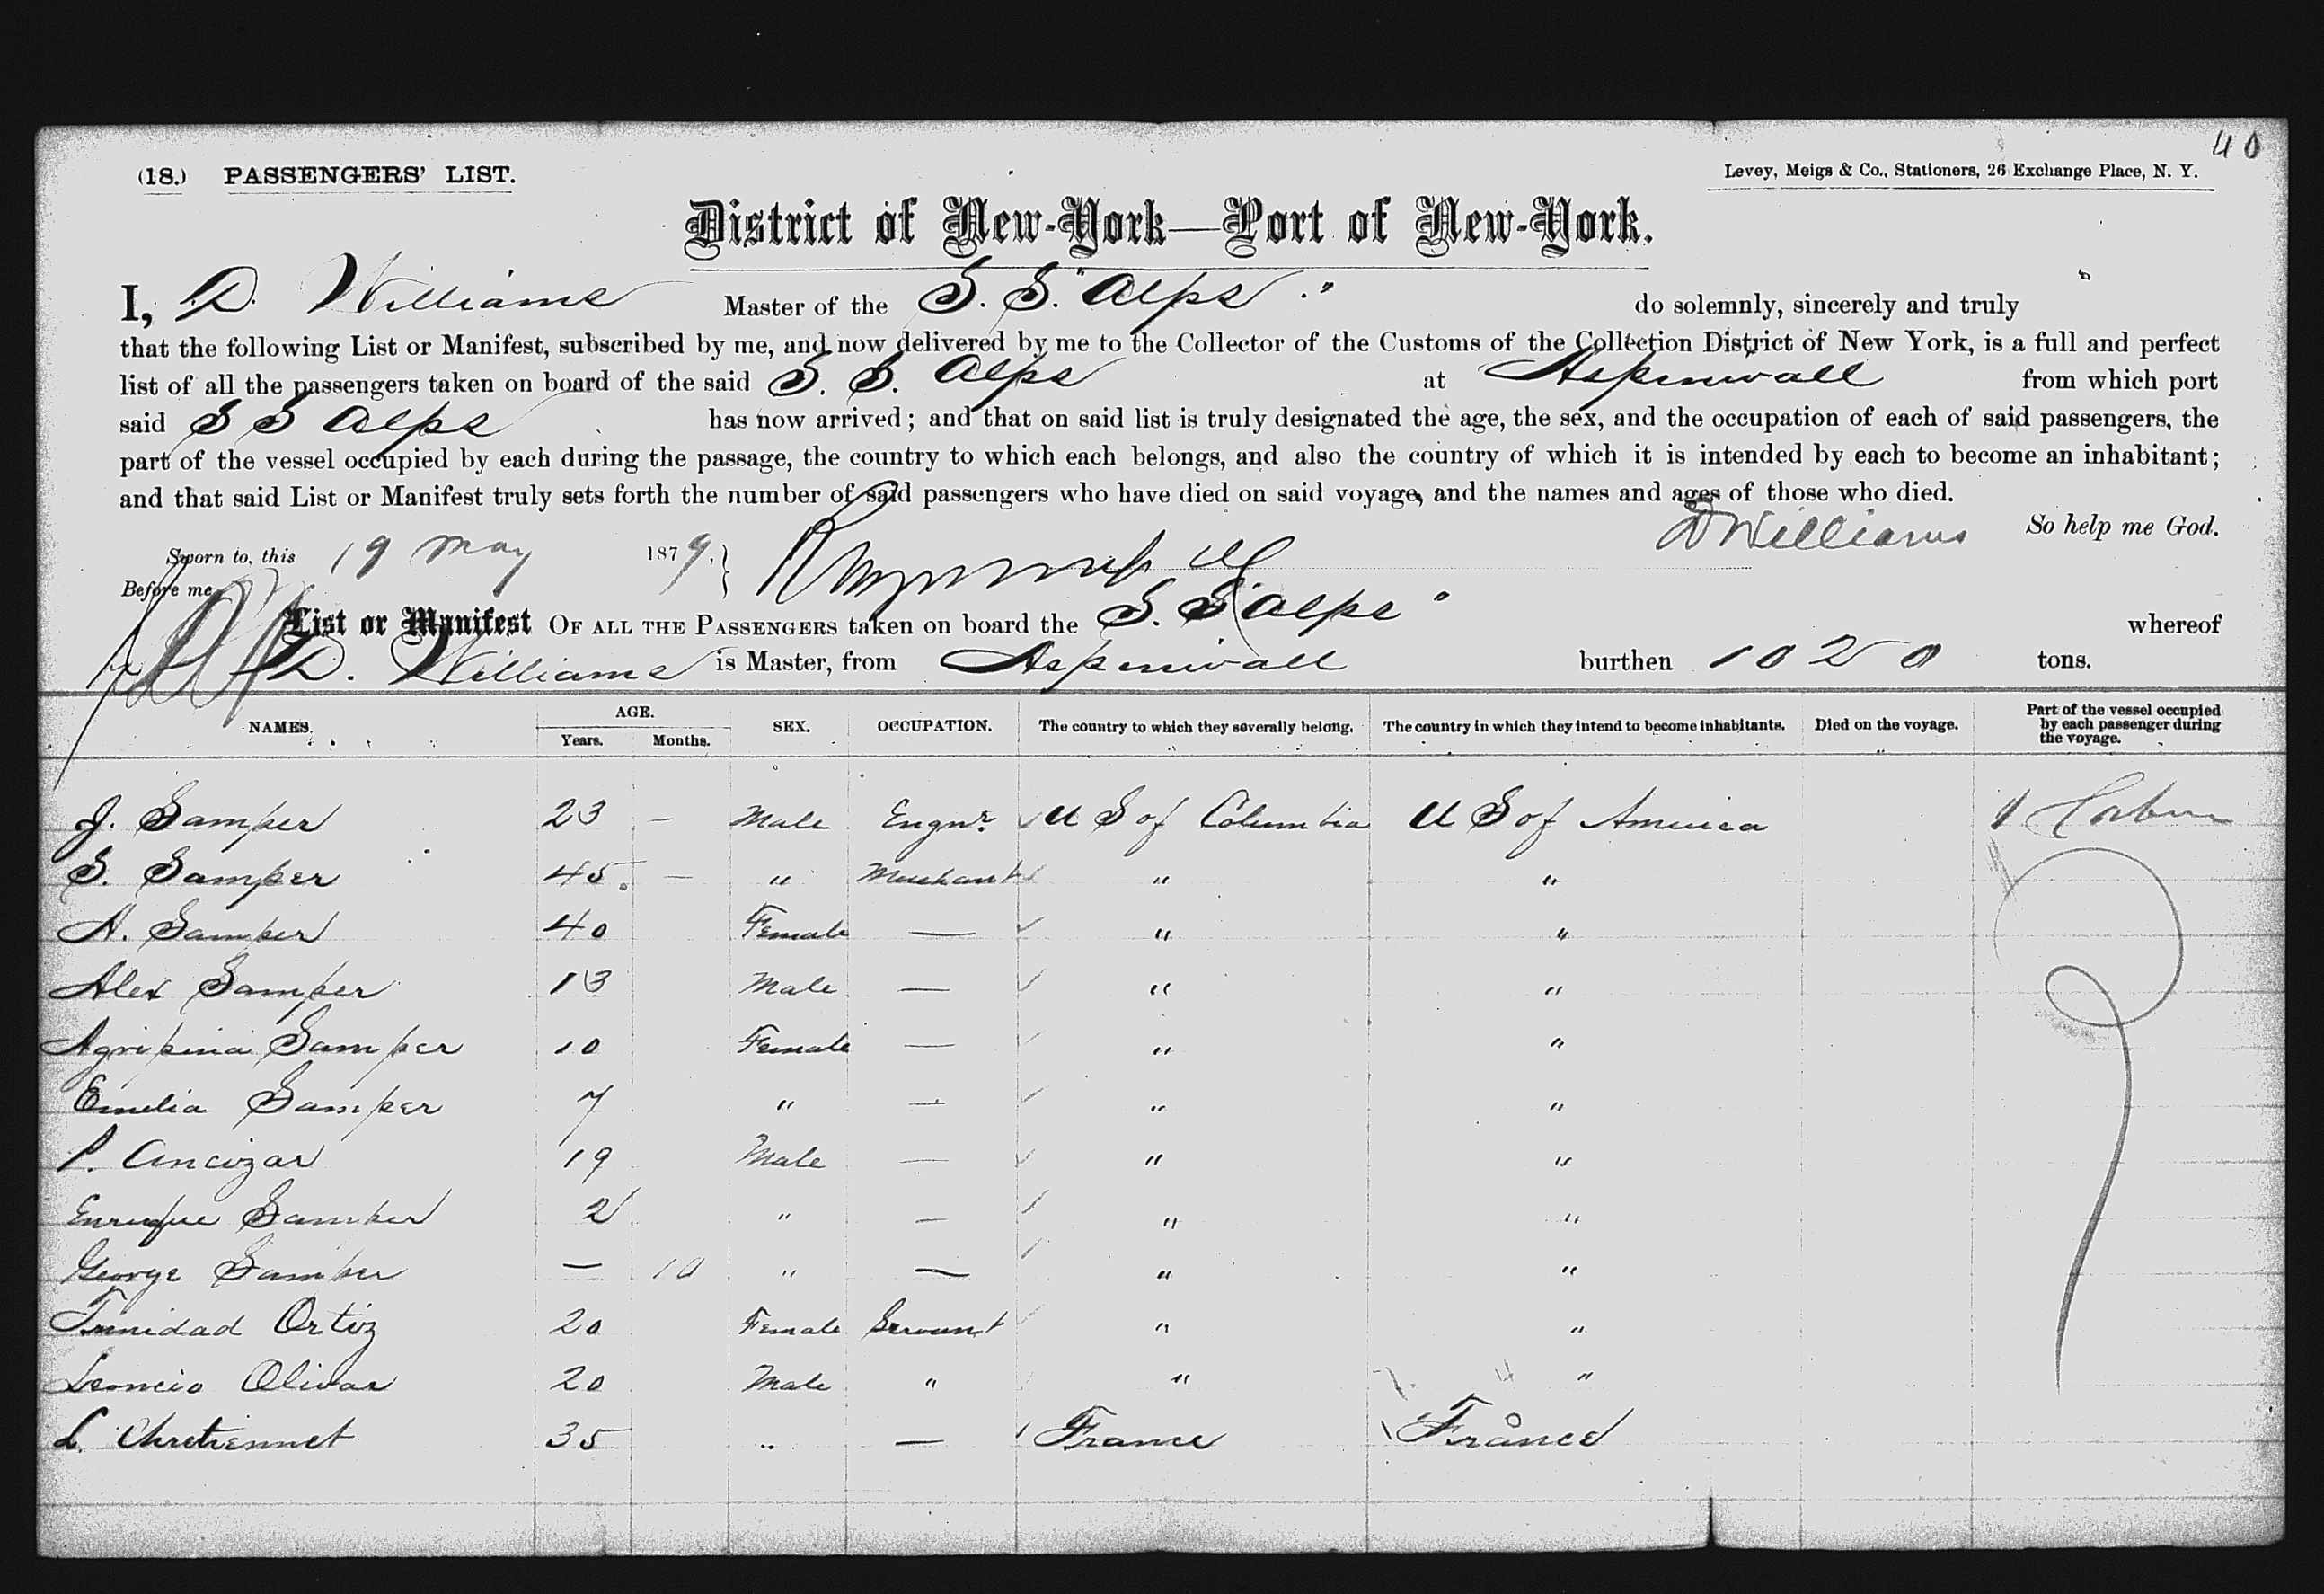 40
(18.) PASSENGERS' LIST. Levey, Meigs & Co., Stationers, 26 Exchange Place, N. Y.
District of New-York—Port of New-York.
I, D. Williams Master of the S. S. "Alps." do solemnly, sincerely and truly
that the following List or Manifest, subscribed by me, and now delivered by me to the Collector of the Customs of the Collection District of New York, is a full and perfect
list of all the passengers taken on board of the said S. S. Alps at Aspinwall from which port
said S S Alps has now arrived; and that on said list is truly designated the age, the sex, and the occupation of each of said passengers, the
part of the vessel occupied by each during the passage, the country to which each belongs, and also the country of which it is intended by each to become an inhabitant;
and that said List or Manifest truly sets forth the number of said passengers who have died on said voyage, and the names and ages of those who died.
D Williams So help me God.
Sworn to, this 19 May 1879.
Before me
List or Manifest OF ALL THE PASSENGERS taken on board the S. S. "Alps" whereof
D. Williams is Master, from Aspinwall burthen 1020 tons.
NAMES. AGE. Years. Months. SEX. OCCUPATION. The country to which they severally belong. The country in which they intend to become inhabitants. Died on the voyage. Part of the vessel occupied by each passenger during the voyage.
J. Samper 23 — Male Engnr. U S of Columbia U S of America
S. Samper 45. — " Merchant " "
A. Samper 40 Female — " "
Alex Samper 13 Male — " "
Agripina Samper 10 Female — " "
Emelia Samper 7 " — " "
P. Ancizar 19 Male — " "
Enrique Samper 2 " — " "
George Samper — 10 " — " "
Trinidad Ortiz 20 Female Servant " "
Leoncio Olivar 20 Male " " "
L. Chretiennet 35 " — France France